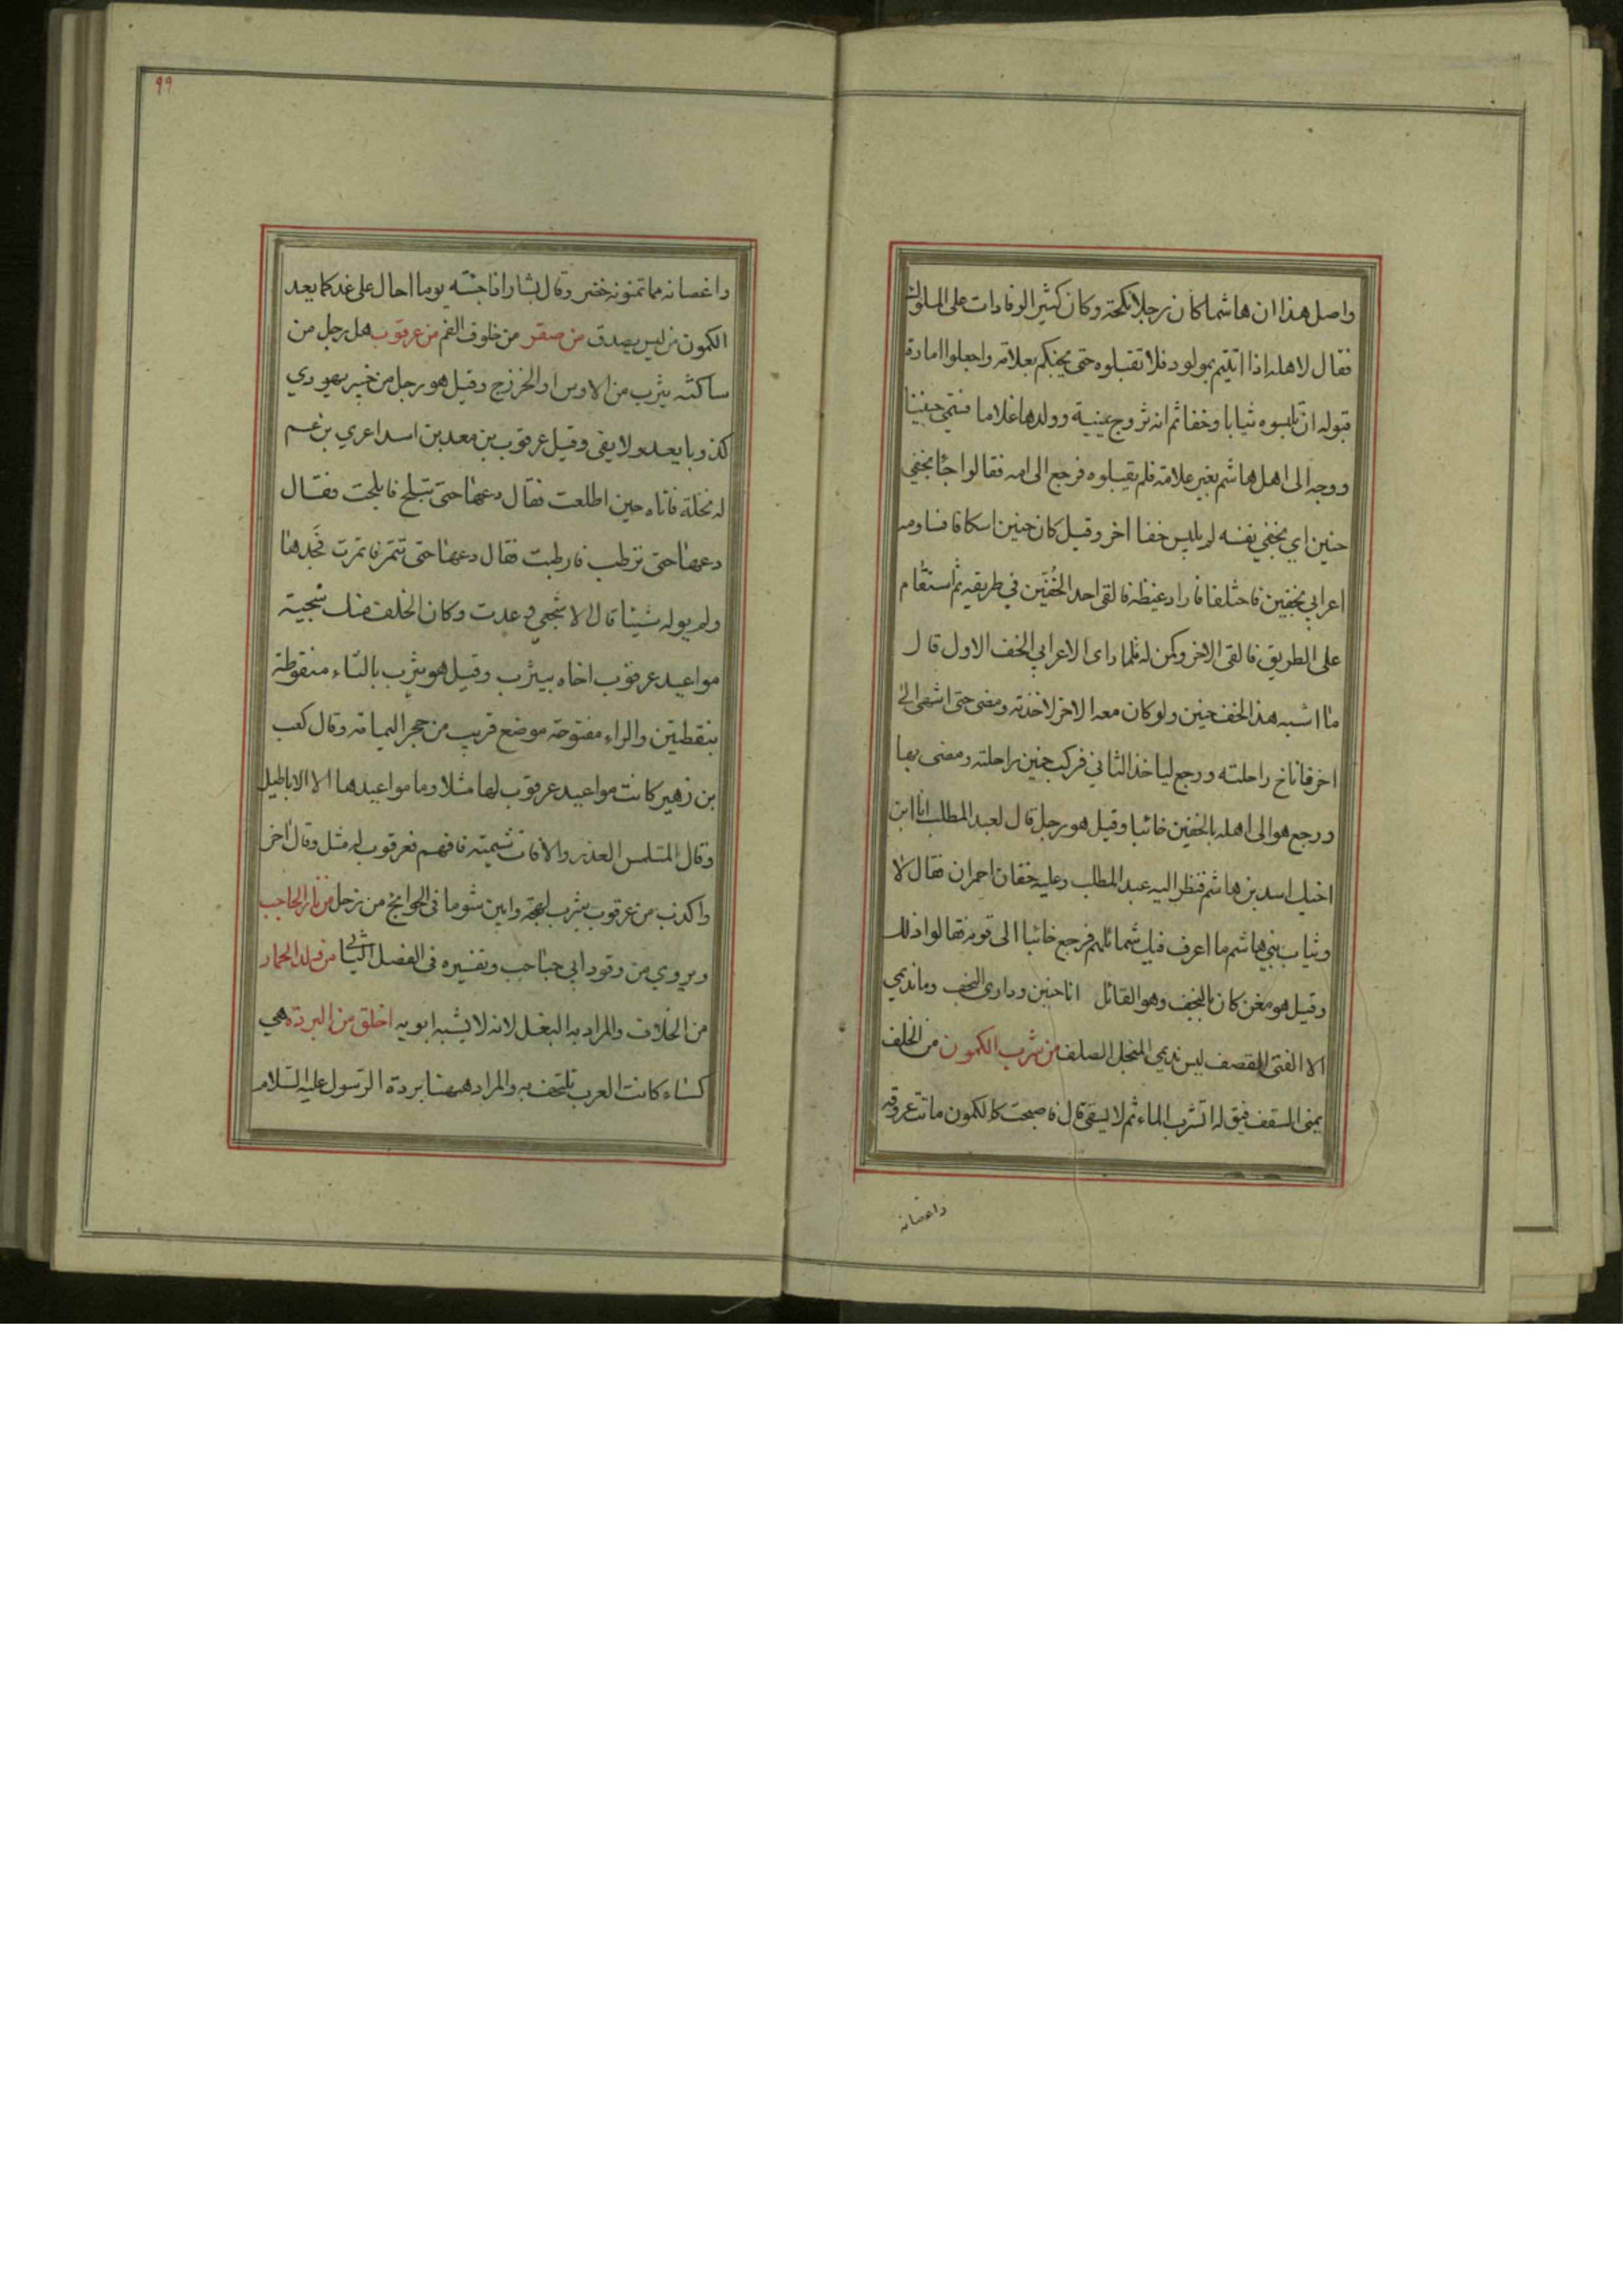 واصل هذا ان هاشما كان رجلا نكحة وكان كثير الوفادات على الملوك
فقال لاهله اذا اتيتم بمولود فلا تقبلوه حتى يجيكم بعلامة واجعلوا امارة
قبوله ان تلبسوه ثيابا وخفا ثم انه تزوج يمنية وولدها غلاما فسمي حنينا
ووجه الى اهل هاشم بغير علامة فلم يقبلوه فرجع الى امه فقالوا جا بخفي
حنين اي بخفي نفسه لم يلبس خفا اخر وقيل كان حنين اسكافا فساومه
اعرابي بخفين فاختلفا فاراد غيظه فالقى احد الخفين في طريقه ثم استقام
على الطريق فالقى الاخر وكمن له فلما راى الاعرابي الخف الاول قال
ما اشبه هذا الخف حنين ولو كان معه الاخر لاخذته ومضى حتى اشفى الى
اخر فاناخ راحلته ورجع لياخذ الثاني فركب حنين راحلته ومضى بها
ورجع هو الى اهله بالخفين خائبا وقيل هو رجل قال لعبد المطلب انا ابن
اخيك اسد بن هاشم فنظر اليه عبد المطلب وعليه خفان احمران فقال لا
وثياب بني هاشم ما اعرف فيك شمائلهم فرجع خائبا الى قومه فقالوا ذلك
وقيل هو مغن كان بالنجف وهو القائل انا حنين وداري النجف وما نديمي
الا الفتى القصف ليس نديمي المنجل الصلف من شرب الكمون من الخلف
يمنى السقف فيق له اتشرب الماء ثم لا يسقى قال فاصبحت كالكمون ماتت عروقه
واغصانه
٩٩
واغصانه مما تمنونه خضر وقال بشار اذا جئته يوما احال على غد كما يعد
الكمون من ليس يصدق من صقر من خلوف الفم من عرقوب هل رجل من
ساكنه يثرب من الاوس او الخزرج وقيل هو رجل من خيبر يهودي
كذوبا يعد ولا يفى وقيل عرقوب بن معبد بن اسد اعري بن عم
له نخلة فاتاه حين اطلعت فقال دعها حتى تبلح فابلحت فقال
دعها حتى ترطب فارطبت فقال دعها حتى تتمر فاتمرت فجدها
ولم يوله شيئا قال الاشجعي وعدت وكان الخلف منك سجية
مواعيد عرقوب اخاه بيثرب وقيل هو يترب بالتاء منقوطة
بنقطتين والراء مفتوحة موضع قريب من حجر اليمامة وقال كعب
بن زهير كانت مواعيد عرقوب لها مثلا وما مواعيدها الا الاباطيل
وقال المتلمس العذر والافات شيمته فافهم فعرقوب له مثل وقال اخر
واكذب من عرقوب يثرب لهجة وابين شوما في الحوائج من زحل من نار الحاجب
ويروي من وقود ابي حباحب وتفسيره في الفصل الثاني من ولد الحمار
من الخلاف والمراد به البغل لانه لا يشبه ابويه اخلق من البردة هي
كساء كانت العرب تلتحف به والمراد ههنا بردة الرسول عليه السلام